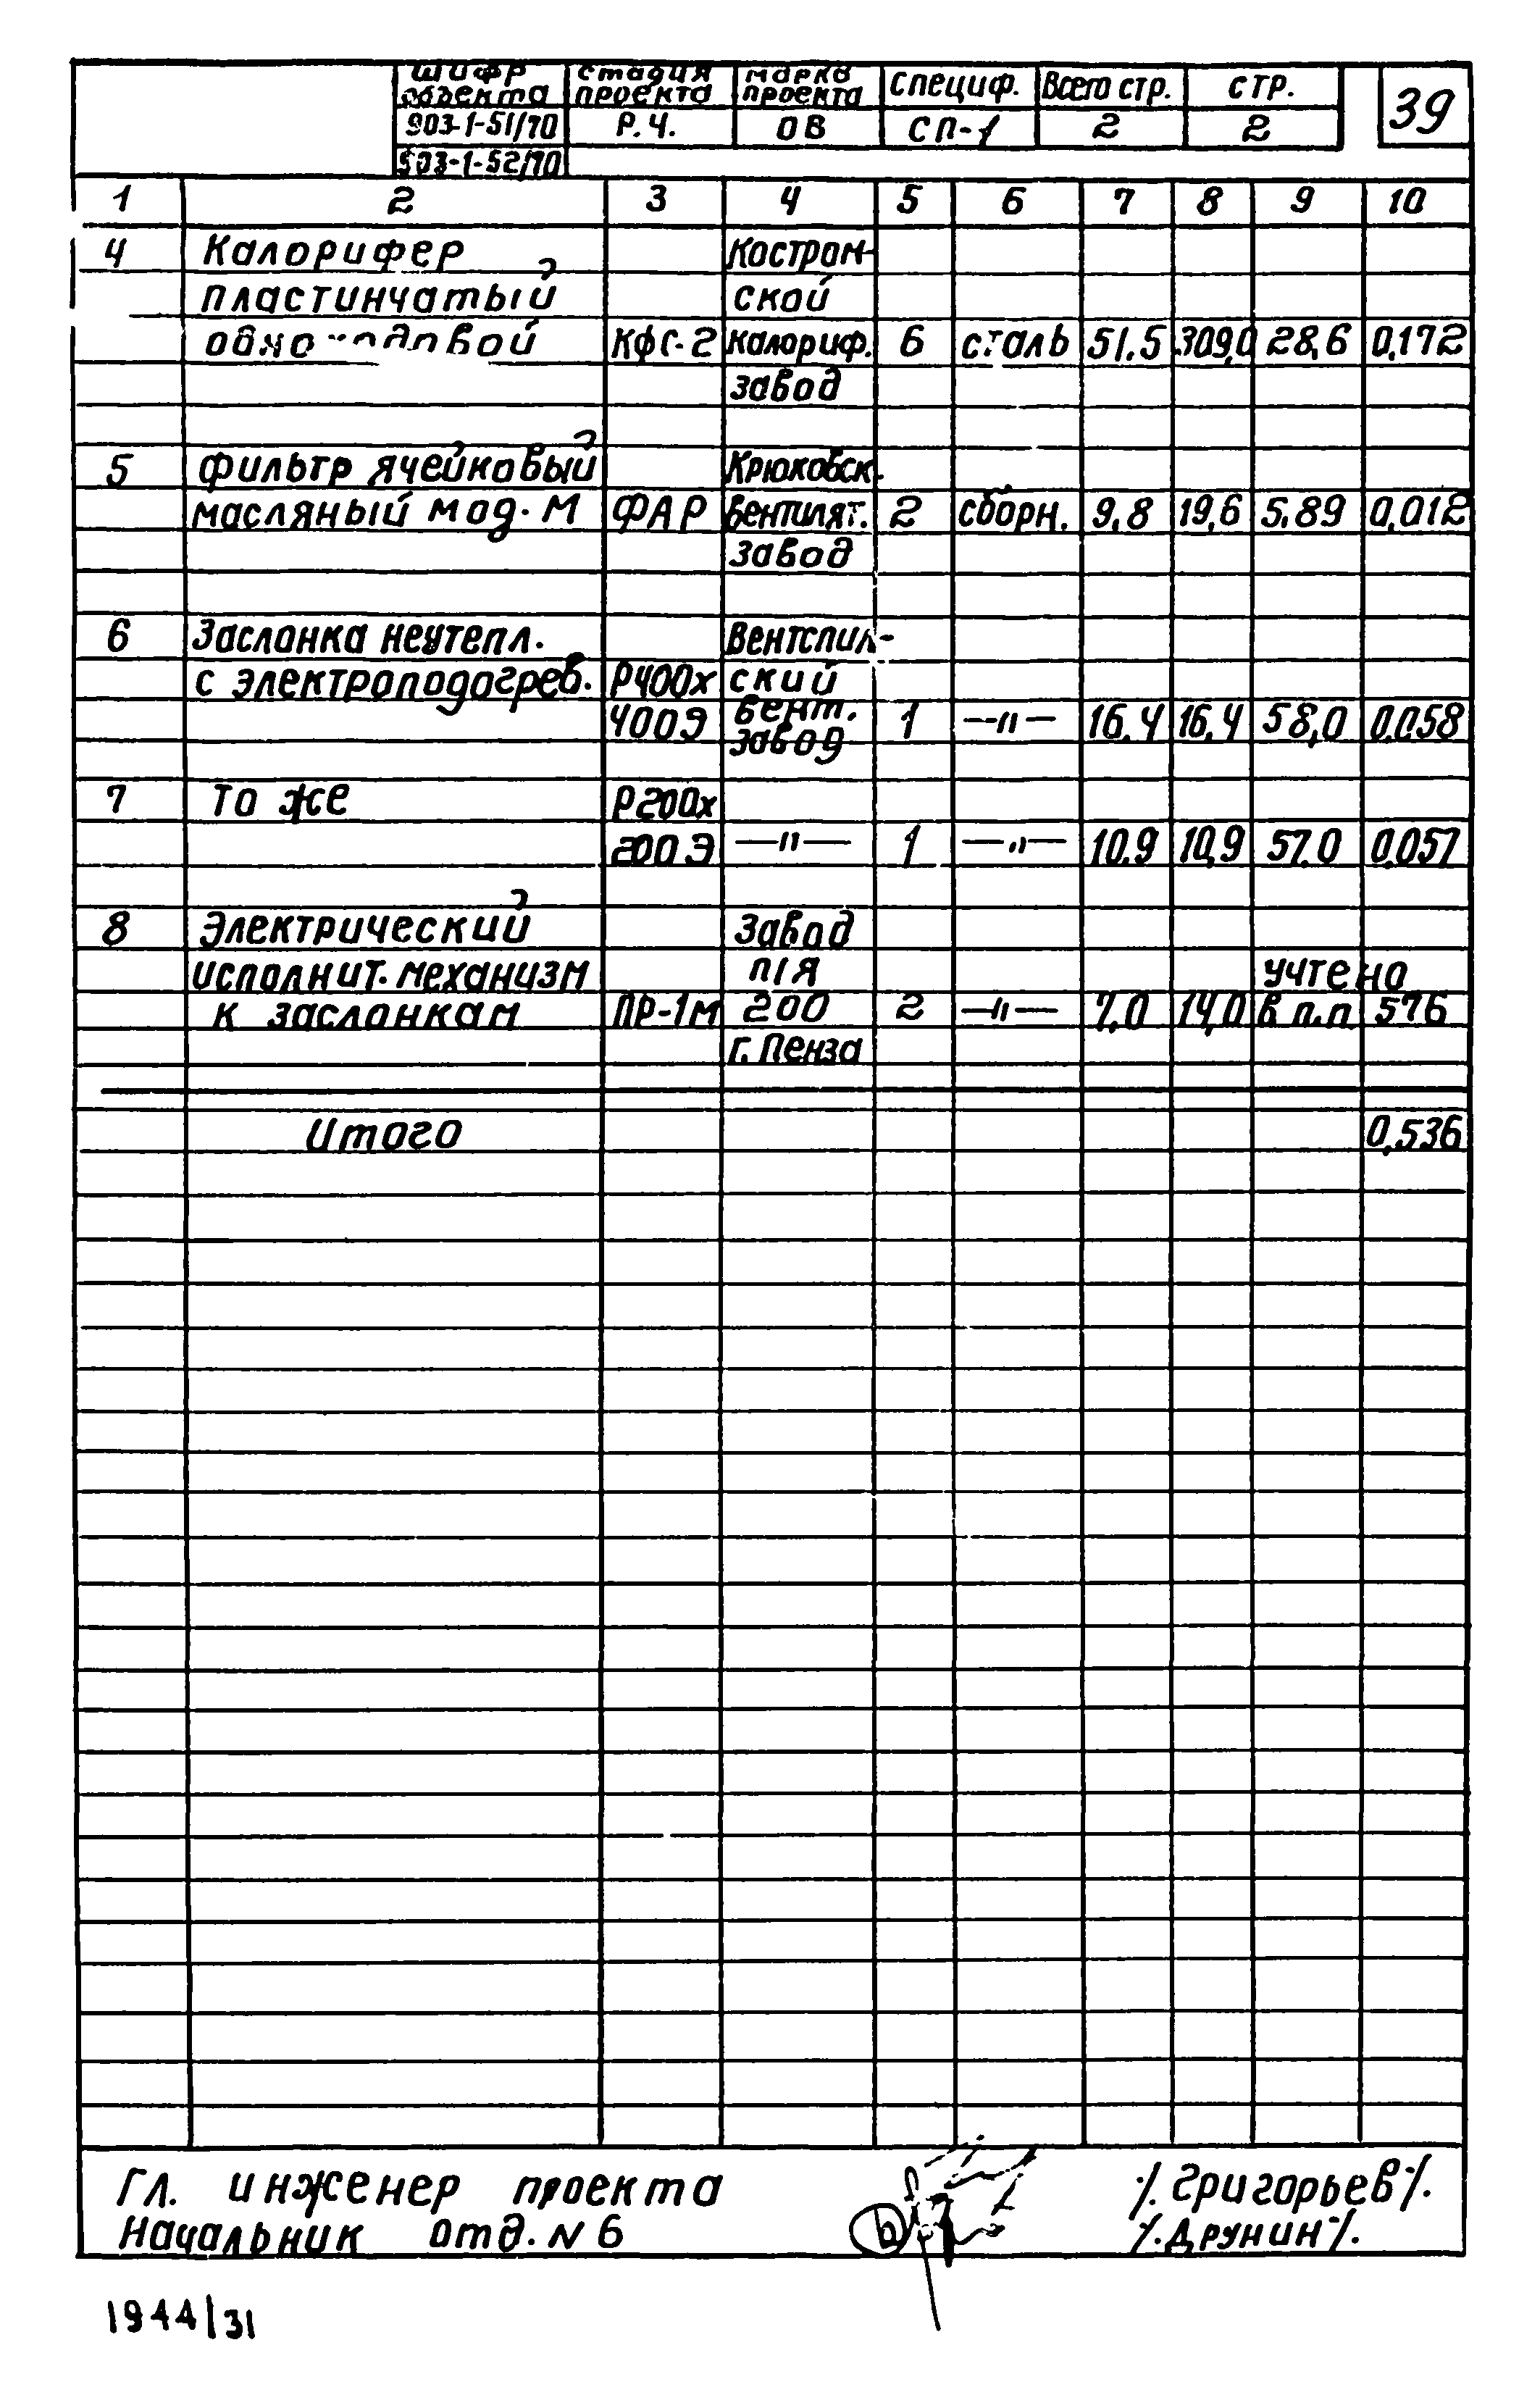 шифр объекта стадия проекта марка проекта специф. Всего стр. стр. 39
903-1-51/70 Р.Ч. ОВ СП-1 2 2
903-1-52/70
1 2 3 4 5 6 7 8 9 10
4 Калорифер Костром-
пластинчатый ской
КФС-2 калориф. 6 сталь 51.5 309,0 28,6 0,172
завод
5 Фильтр ячейковый Крюковск.
масляный мод. М ФАР вентилят. 2 сборн. 9,8 19,6 5.89 0,012
завод
6 Заслонка неутепл. Вентспил-
с электроподогрев. Р400х ский
400Э вент. 1 —"— 16.4 16,4 58,0 0,058
завод
7 То же Р200х
200Э —"— 1 —"— 10.9 10,9 57.0 0,057
8 Электрический Завод
исполнит. механизм п/я учтено
к заслонкам ПР-1м 200 2 —"— 7,0 14,0 в п.п. 576
г. Пенза
Итого 0,536
Гл. инженер проекта /.Григорьев/.
Начальник отд. N 6 /.Друнин/.
1944/31